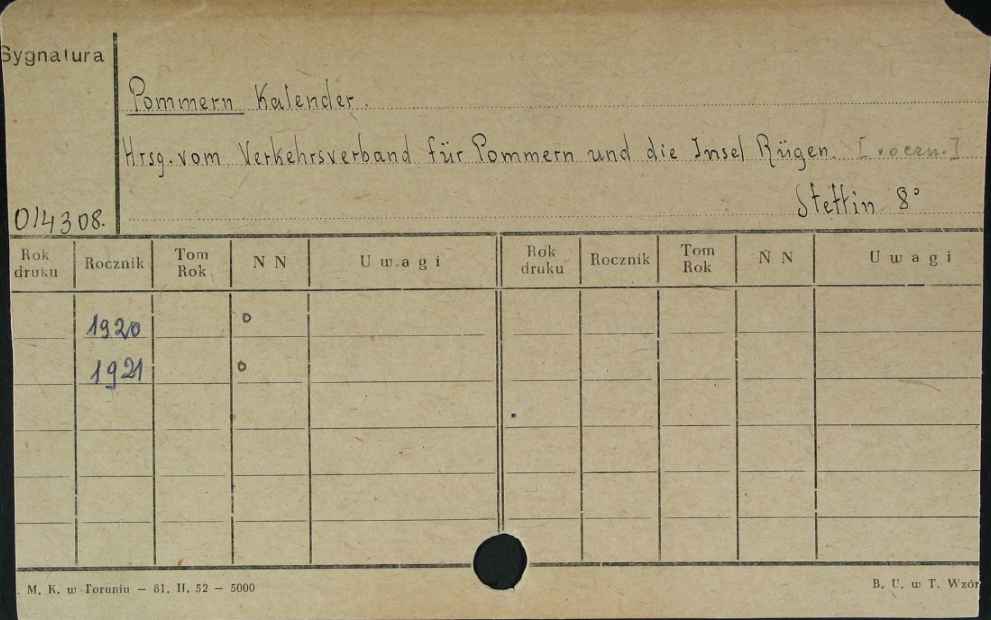 Sygnatura
Pommern Kalender.
Hrsg. vom Verkehrsverband für Pommern und die Insel Rügen. [roczn.]
Stettin 8°
014308.
Rok druku Rocznik Tom Rok N N Uwagi Rok druku Rocznik Tom Rok N N Uwagi
1920 o
1921 o
. M. K. w Toruniu — 61. II. 52 — 5000
B. U. w T. Wzór